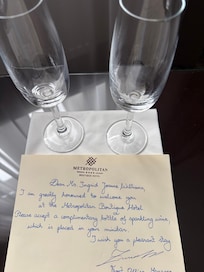 METROPOLITAN
Dear Ms Ingrid
I am greatly honoured to welcome you
at the Metropolitan Boutique Hotel.
Please accept a complimentary bottle of sparkling wine
which is placed in your minibar.
I wish you a pleasant stay
Front Office Manager